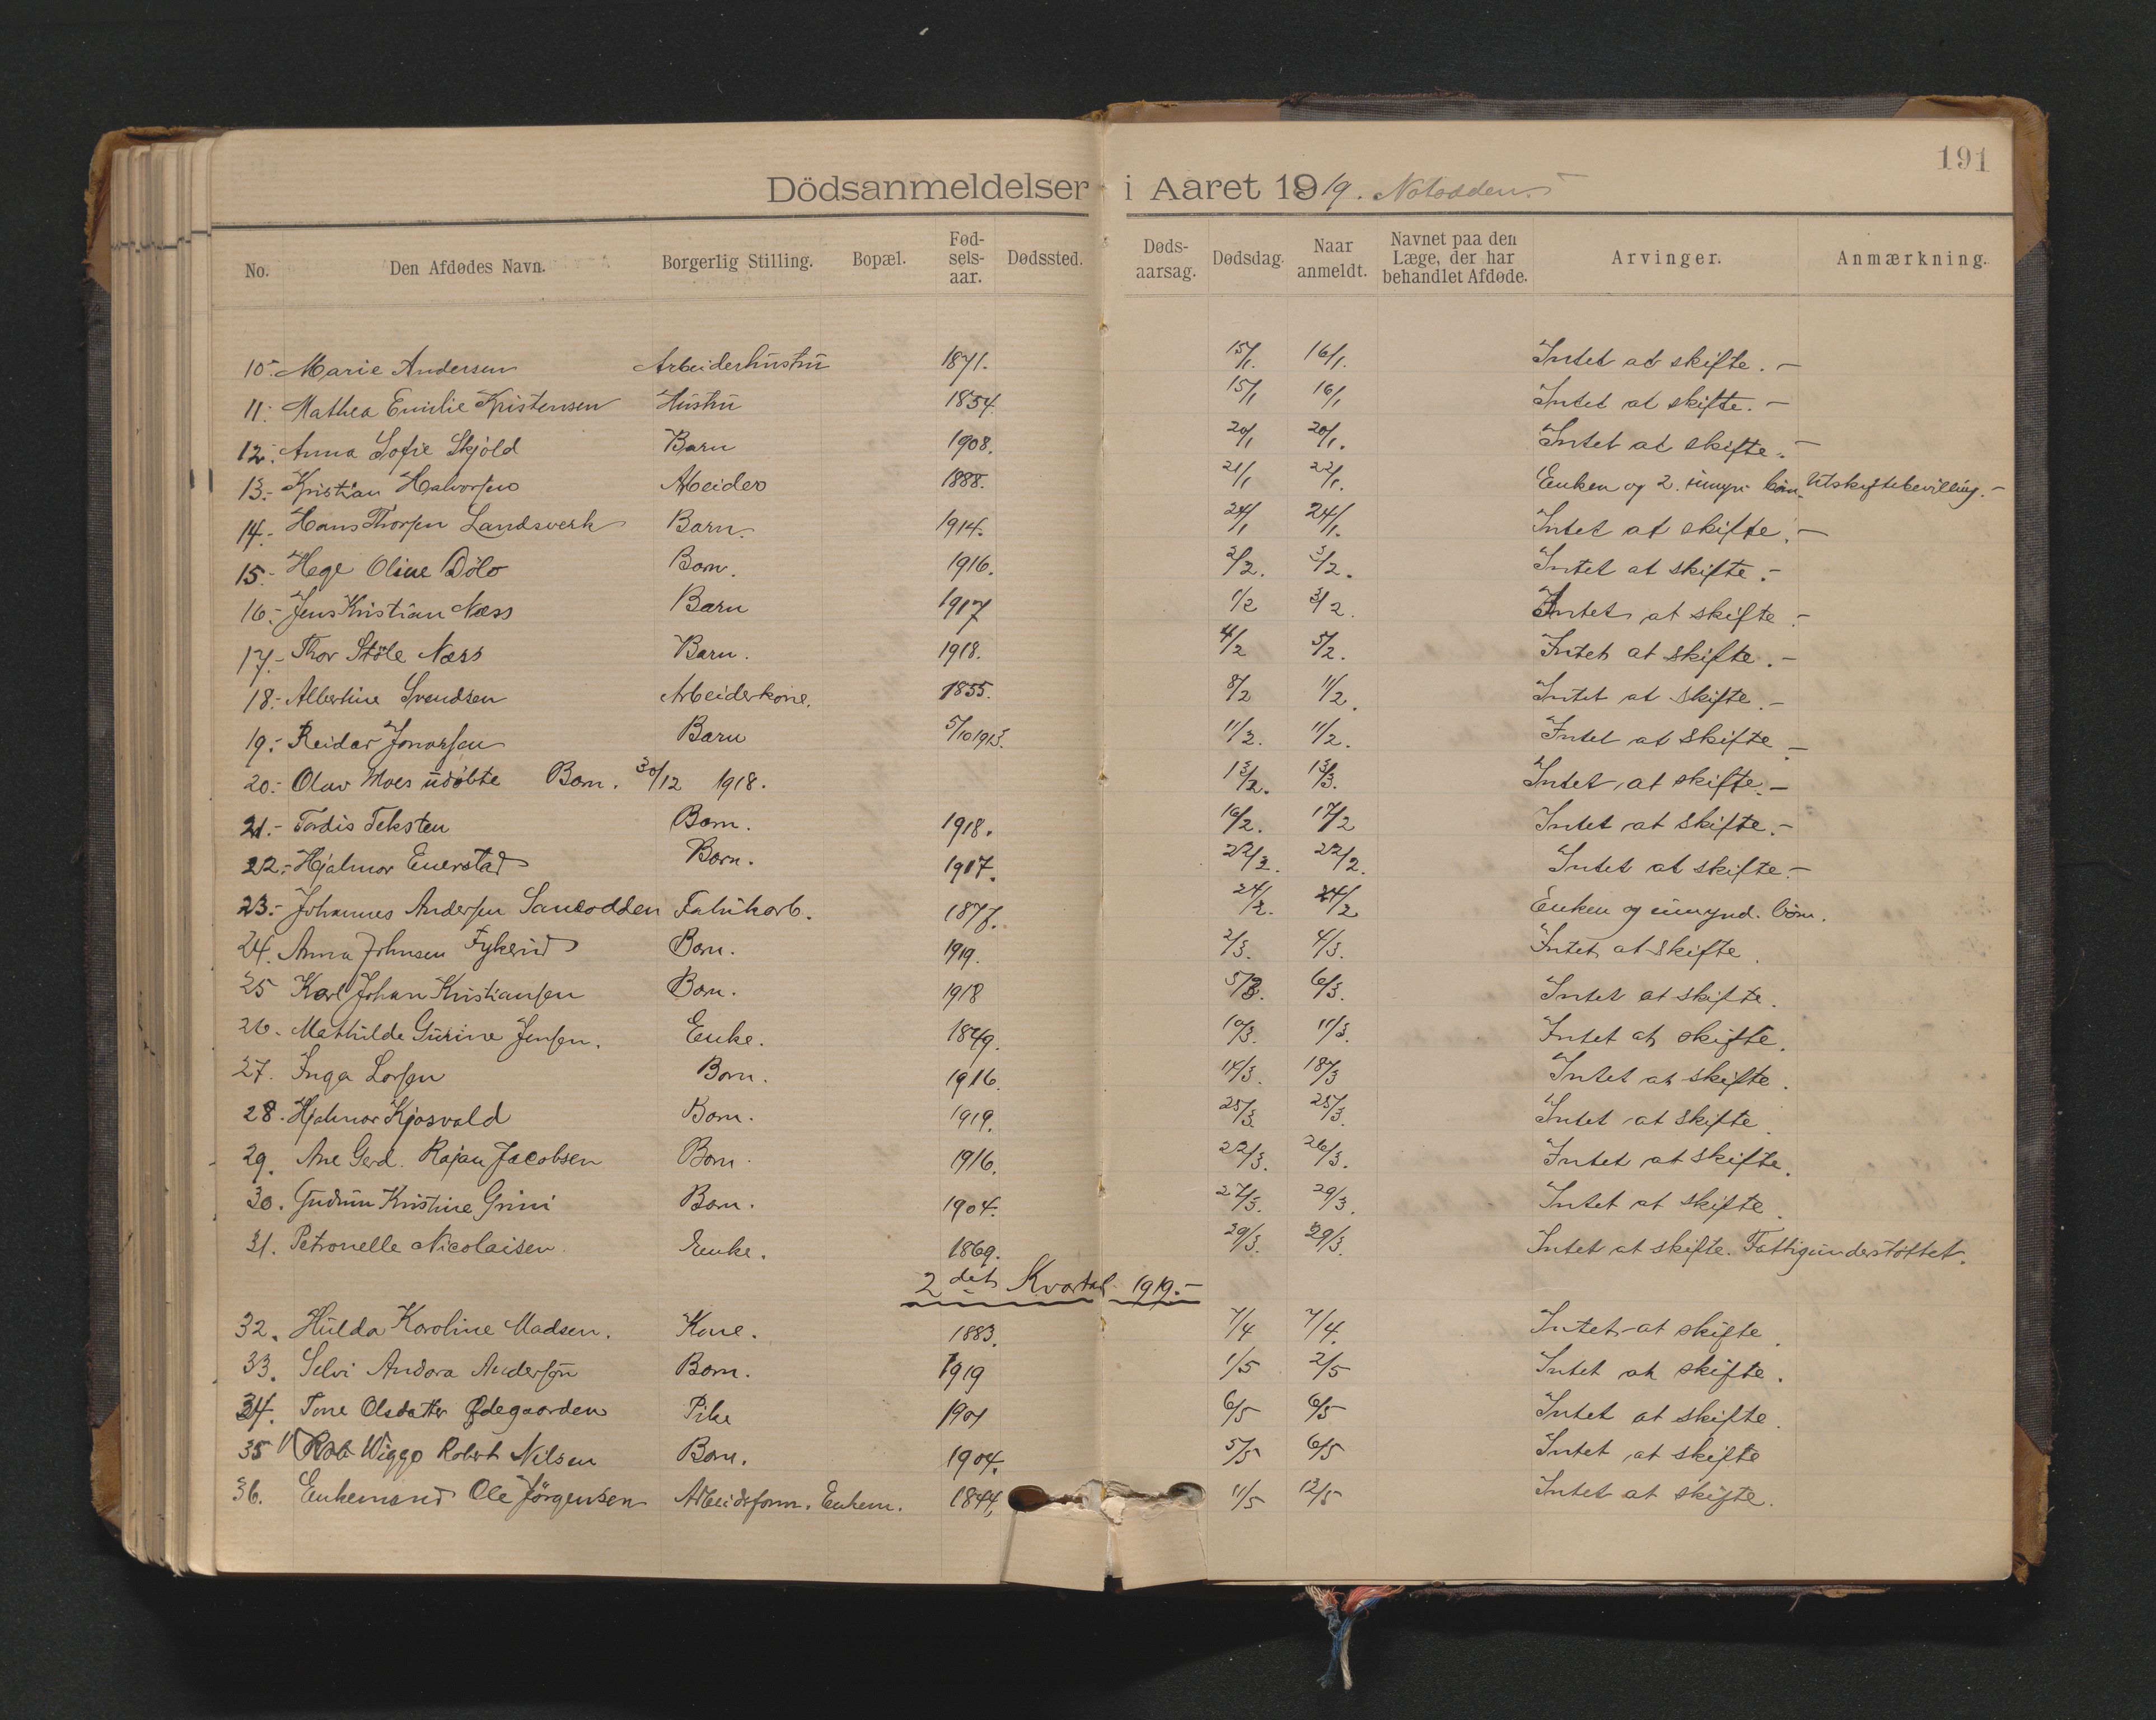 191
Dödsanmeldelser i Aaret 1919. Notodden.
No. Den Afdødes Navn. Borgerlig Stilling. Bopæl. Fødselsaar. Dødssted. Dødsaarsag. Dødsdag. Naar anmeldt. Navnet paa den Læge, der har behandlet Afdøde. Arvinger. Anmærkning.
10. Marie Andersen Arbeiderhustru 1871. 15/1. 16/1. Intet at skifte. –
11. Mathea Emilie Kristensen Hustru 1854. 15/1 16/1 Intet at skifte. –
12. Anna Sofie Skjöld Barn 1908. 20/1 20/1. Intet at skifte. –
13.- Kristian Halvorsen Arbeider 1888. 21/1 22/1. Enken og 2 umyn. börn. Utskiftebevilling. –
14.- Hans Thorsen Landsverk Barn. 1914. 24/1 24/1. Intet at skifte. –
15.- Hege Oline Döla Barn. 1916. 2/2. 3/2. Intet at skifte. –
16.- Jens Kristian Næss Barn 1917 1/2 3/2. Intet at skifte –
17.- Thor Ståle Næss Barn. 1918. 4/2 5/2. Intet at skifte. –
18.- Albertine Svendsen Arbeiderkone. 1855. 8/2 11/2. Intet at skifte. –
19.- Reidar Jonassen Barn 5/10 1913. 11/2. 11/2. Intet at skifte –
20.- Olav Moes udöbte Barn. 30/12 1918. 13/2. 13/3. Intet at skifte. –
21.- Tordis Teksten Barn. 1918. 16/2. 17/2 Intet at skifte. –
22.- Hjalmar Enerstad Barn. 1917. 22/2. 22/2. Intet at skifte. –
23.- Johannes Andersen Sandodden Fabrikarb. 1877. 24/2. 24/2 Enken og umynd. börn.
24. Anna Johnsen Fykerud Barn. 1919. 2/3. 4/3. Intet at skifte.
25 Karl Johan Kristiansen Barn. 1918 5/3. 6/3. Intet at skifte.
26. Mathilde Gurine Jensen. Enke. 1849. 10/3. 11/3. Intet at skifte.
27. Inga Larsen Barn. 1916. 14/3. 18/3 Intet at skifte.
28. Hjalmar Kjosvold Barn. 1919. 25/3. 25/3. Intet at skifte.
29. Ane Gerd. Rajan Jacobsen Barn. 1916. 22/3. 26/3. Intet at skifte.
30. Gudrun Kristine Grini Barn. 1904. 27/3. 29/3. Intet at skifte.
31. Petronelle Nicolaisen Enke. 1869. 29/3. 29/3. Intet at skifte. Fattigunderstöttet.
2det Kvartal 1919. –
32. Hulda Karoline Madsen. Kone. 1883. 7/4 7/4. Intet at skifte.
33. Selvi Andora Andersen Barn. 1919 1/5 2/5 Intet at skifte.
34. Tone Olsdatter Ødegaarden Pike 1901 6/5 6/5 Intet at skifte.
35 Wiggo Robert Nilsen Barn. 1904. 5/5 6/5 Intet at skifte
36. Enkemand Ole Jörgensen Arbeidsform. Enkem. 1844, 11/5 12/5 Intet at skifte.